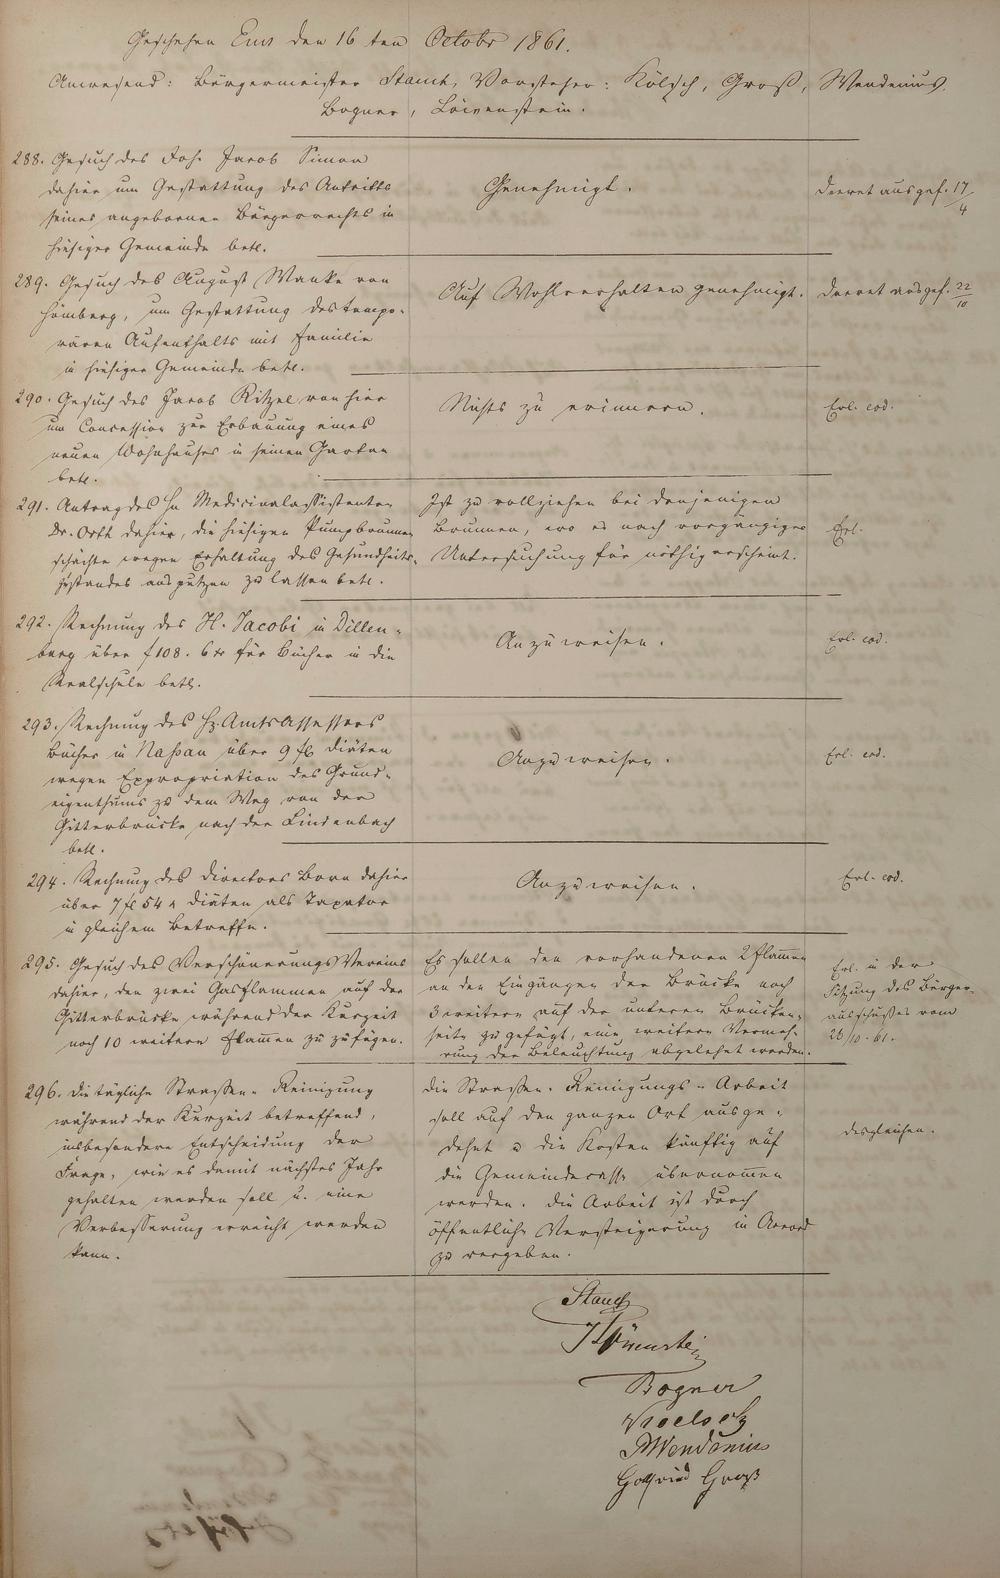 Geschehen Ems den 16ten October 1861.
Anwesend: Bürgermeister Stauch, Vorsteher: Kölsch, Groß, Wendenius,
Bogner, Löwenstein.
288. Gesuch des Joh. Jacob Simon
dahier um Gestattung des Antritts
seines angebornen Bürgerrechts in
hiesiger Gemeinde betr.
Genehmigt.
Decret ausgef. 17/4
289. Gesuch des August Wanke von
Hömberg, um Gestattung des tempo-
rären Aufenthalts mit Familie
in hiesiger Gemeinde betr.
Auf Wohlverhalten genehmigt.
Decret ausgef. 22/10
290. Gesuch des Jacob Ritzel von hier
um Concession zur Erbauung eines
neuen Wohnhauses in seinen Garten
betr.
Nichts zu erinnern.
Erl. eod.
291. Antrag des Hn Medicinalassistenten
Dr. Orth dahier, die hiesigen Pumpbrunnen-
schächte wegen Erhaltung des Gesundheits-
zustandes ausputzen zu lassen betr.
Ist zu vollziehen bei denjenigen
Brunnen, wo es nach vorgängiger
Untersuchung für nöthig erscheint.
Erl.
292. Rechnung des H. Jacobi in Dillen-
burg über f 108. 6 xr für Bücher in die
Realschule betr.
Anzuweisen.
Erl. eod.
293. Rechnung des Hr. Amtsassessors
Bücher in Naßau über 9 fl Diäten
wegen Expropriation des Grund-
eigenthums zu dem Weg von der
Gitterbrücke nach der Lindenbach
betr.
Anzuweisen.
Erl. eod.
294. Rechnung des Directors Born dahier
über 7 fl 54 x Diäten als Taxator
in gleichem Betreffe.
Anzuweisen.
Erl. eod.
295. Gesuch des Verschönerungs Vereins
dahier, den zwei Gasflammen auf der
Gitterbrücke während der Kurzeit
noch 10 weitere Flam̄en zuzufügen.
Es sollen den vorhandenen 2 Flam̄en
an den Eingängen der Brücke noch
3 weitere auf der unteren Brücken-
seite zugefügt, eine weitere Vermeh-
rung der Beleuchtung abgelehnt werden.
Erl. in der
Sitzung des Bürger-
ausschußes vom
26/10. 61.
296. Die tägliche Strassen-Reinigung
während der Kurzeit betreffend,
insbesondere Entscheidung der
Frage, wie es damit nächstes Jahr
gehalten werden soll u. eine
Verbesserung erreicht werden
kann.
Die Strassen-Reinigungs-Arbeit
soll auf den ganzen Ort ausge-
dehnt u die Kosten künftig auf
die Gemeindecasse übernom̄en
werden. Die Arbeit ist durch
öffentliche Versteigerung in Accord
zu vergeben.
desgleichen.
Stauch
Löwenstein
Bogner
Koelsch
Wendenius
Gottfried Groß